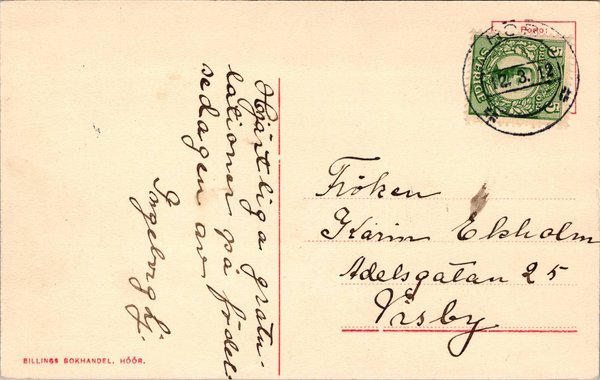 Hjärtliga gratu-
lationer på födel-
sedagen av
Ingeborg L. J.
Porto:
SVERIGE
5
5
HÖÖR
12. 3. 12
Fröken
Karin Ekholm
Adelsgatan 25
Visby
BILLINGS BOKHANDEL, HÖÖR.